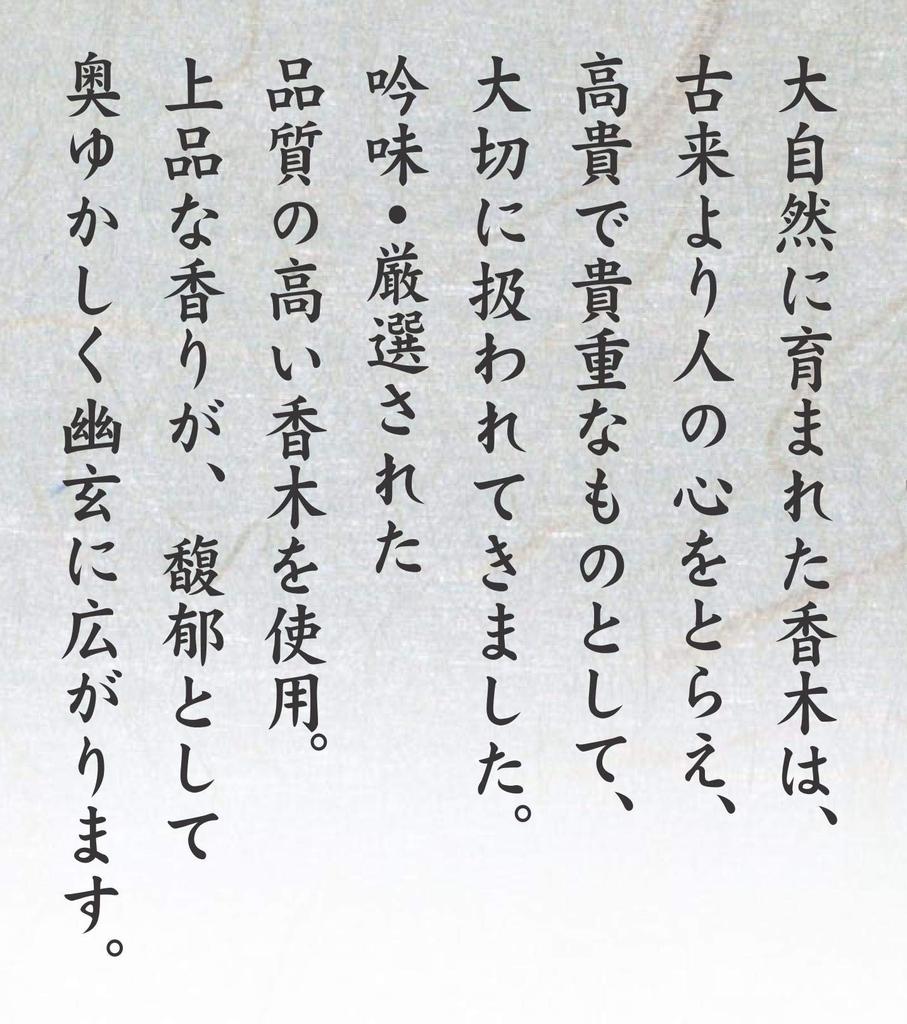 大自然に育まれた香木は、
古来より人の心をとらえ、
高貴で貴重なものとして、
大切に扱われてきました。
吟味・厳選された
品質の高い香木を使用。
上品な香りが、馥郁として
奥ゆかしく幽玄に広がります。